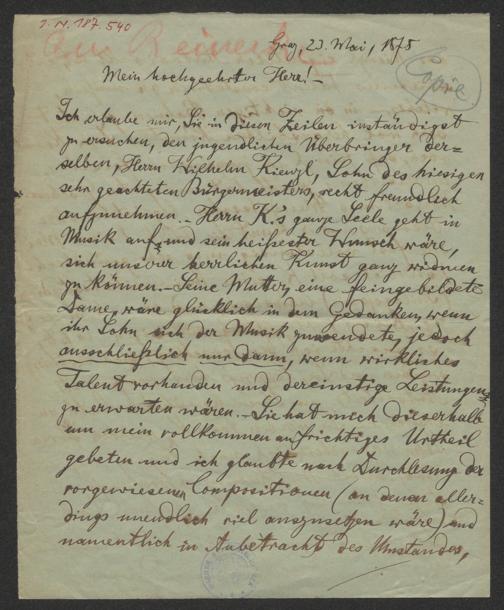 I. N. 187.540
An Reinecke
Graz, 23. Mai, 1875
Copie
Mein hochgeehrter Herr! –
Ich erlaube mir, Sie in diesen Zeilen inständigst
zu ersuchen, den jugendlichen Überbringer der=
selben, Herrn Wilhelm Kienzl, Sohn des hiesigen
sehr geachteten Bürgermeisters, recht freundlich
aufzunehmen. – Herrn K.'s ganze Seele geht in
Musik auf, und sein heißester Wunsch wäre,
sich unserer herrlichen Kunst ganz widmen
zu können. – Seine Mutter, eine feingebildete
Dame, wäre glücklich in dem Gedanken, wenn
ihr Sohn sich der Musik zuwendete, jedoch
ausschließlich nur dann, wenn wirkliches
Talent vorhanden und dereinstige Leistungen
zu erwarten wären. – Sie hat mich dieserhalb
um mein vollkommen aufrichtiges Urtheil
gebeten und ich glaubte nach Durchlesung der
vorgewiesenen Compositionen (an denen aller=
dings unendlich viel auszusetzen wäre) und
namentlich in Anbetracht des Umstandes,